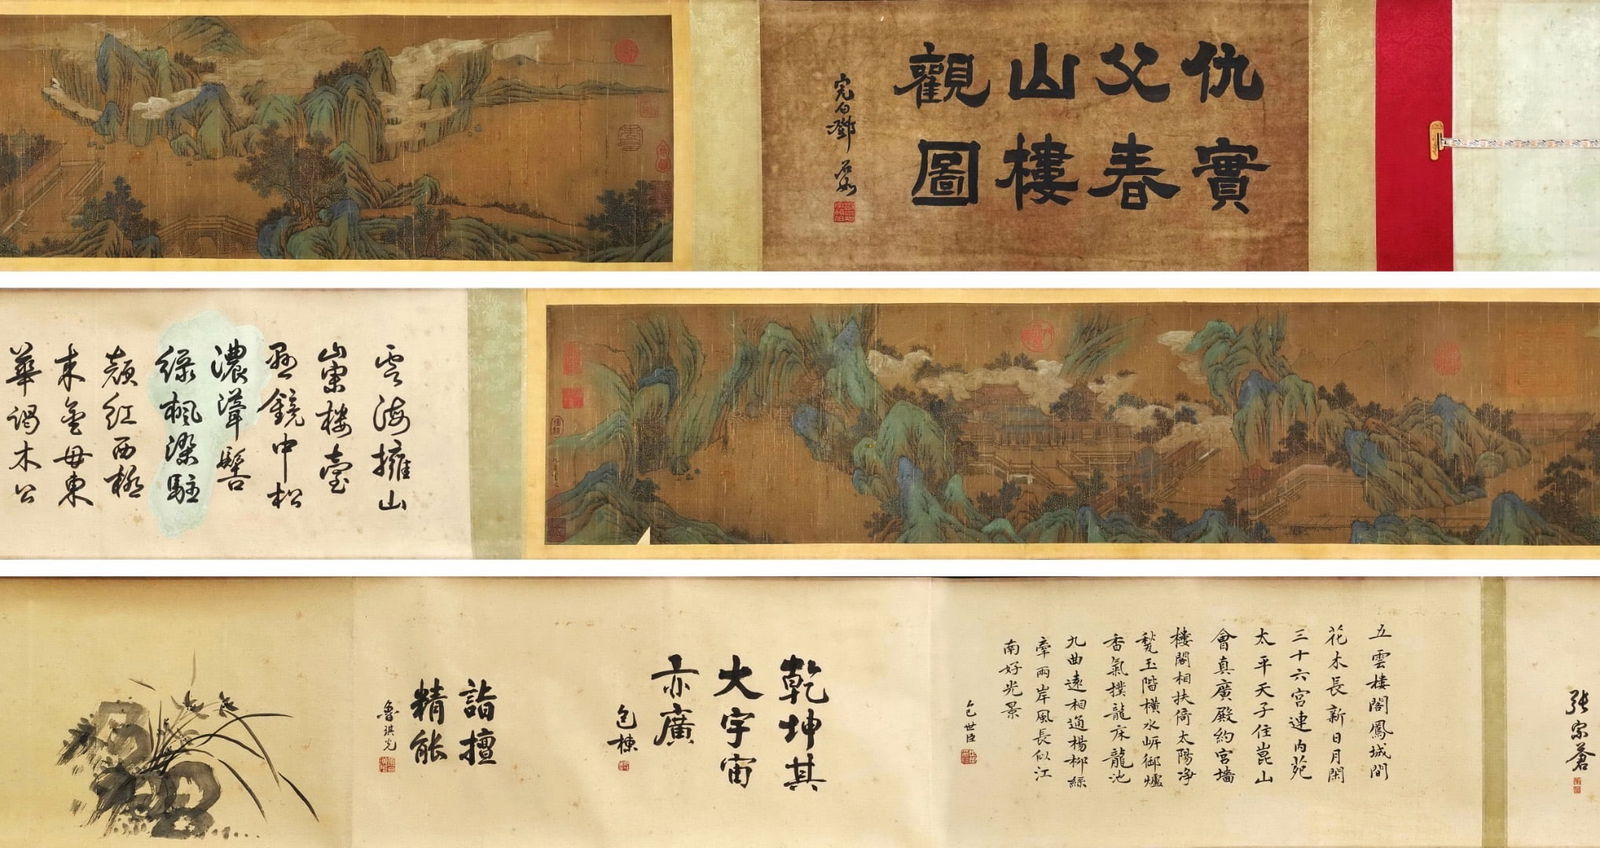 仇實
父春
山樓
觀圖
完白鄧石如
雲海擁山
樓臺
懸鏡中松
濃聳髻
綠楓染駐
顏紅西極
來金母東
華謁木公
張宗蒼
五雲樓閣鳳城間
花木長新日月閑
三十六宮連內苑
太平天子住崑山
會真廣殿約宮墻
樓閣相扶倚太陽淨
甃玉階橫水岍御爐
香氣撲龍床龍池
九曲遠相通楊柳絲
牽兩岸風長似江
南好光景
包世臣
乾坤其
大宇宙
亦廣
包棟
詣擅
精能
魯琪光